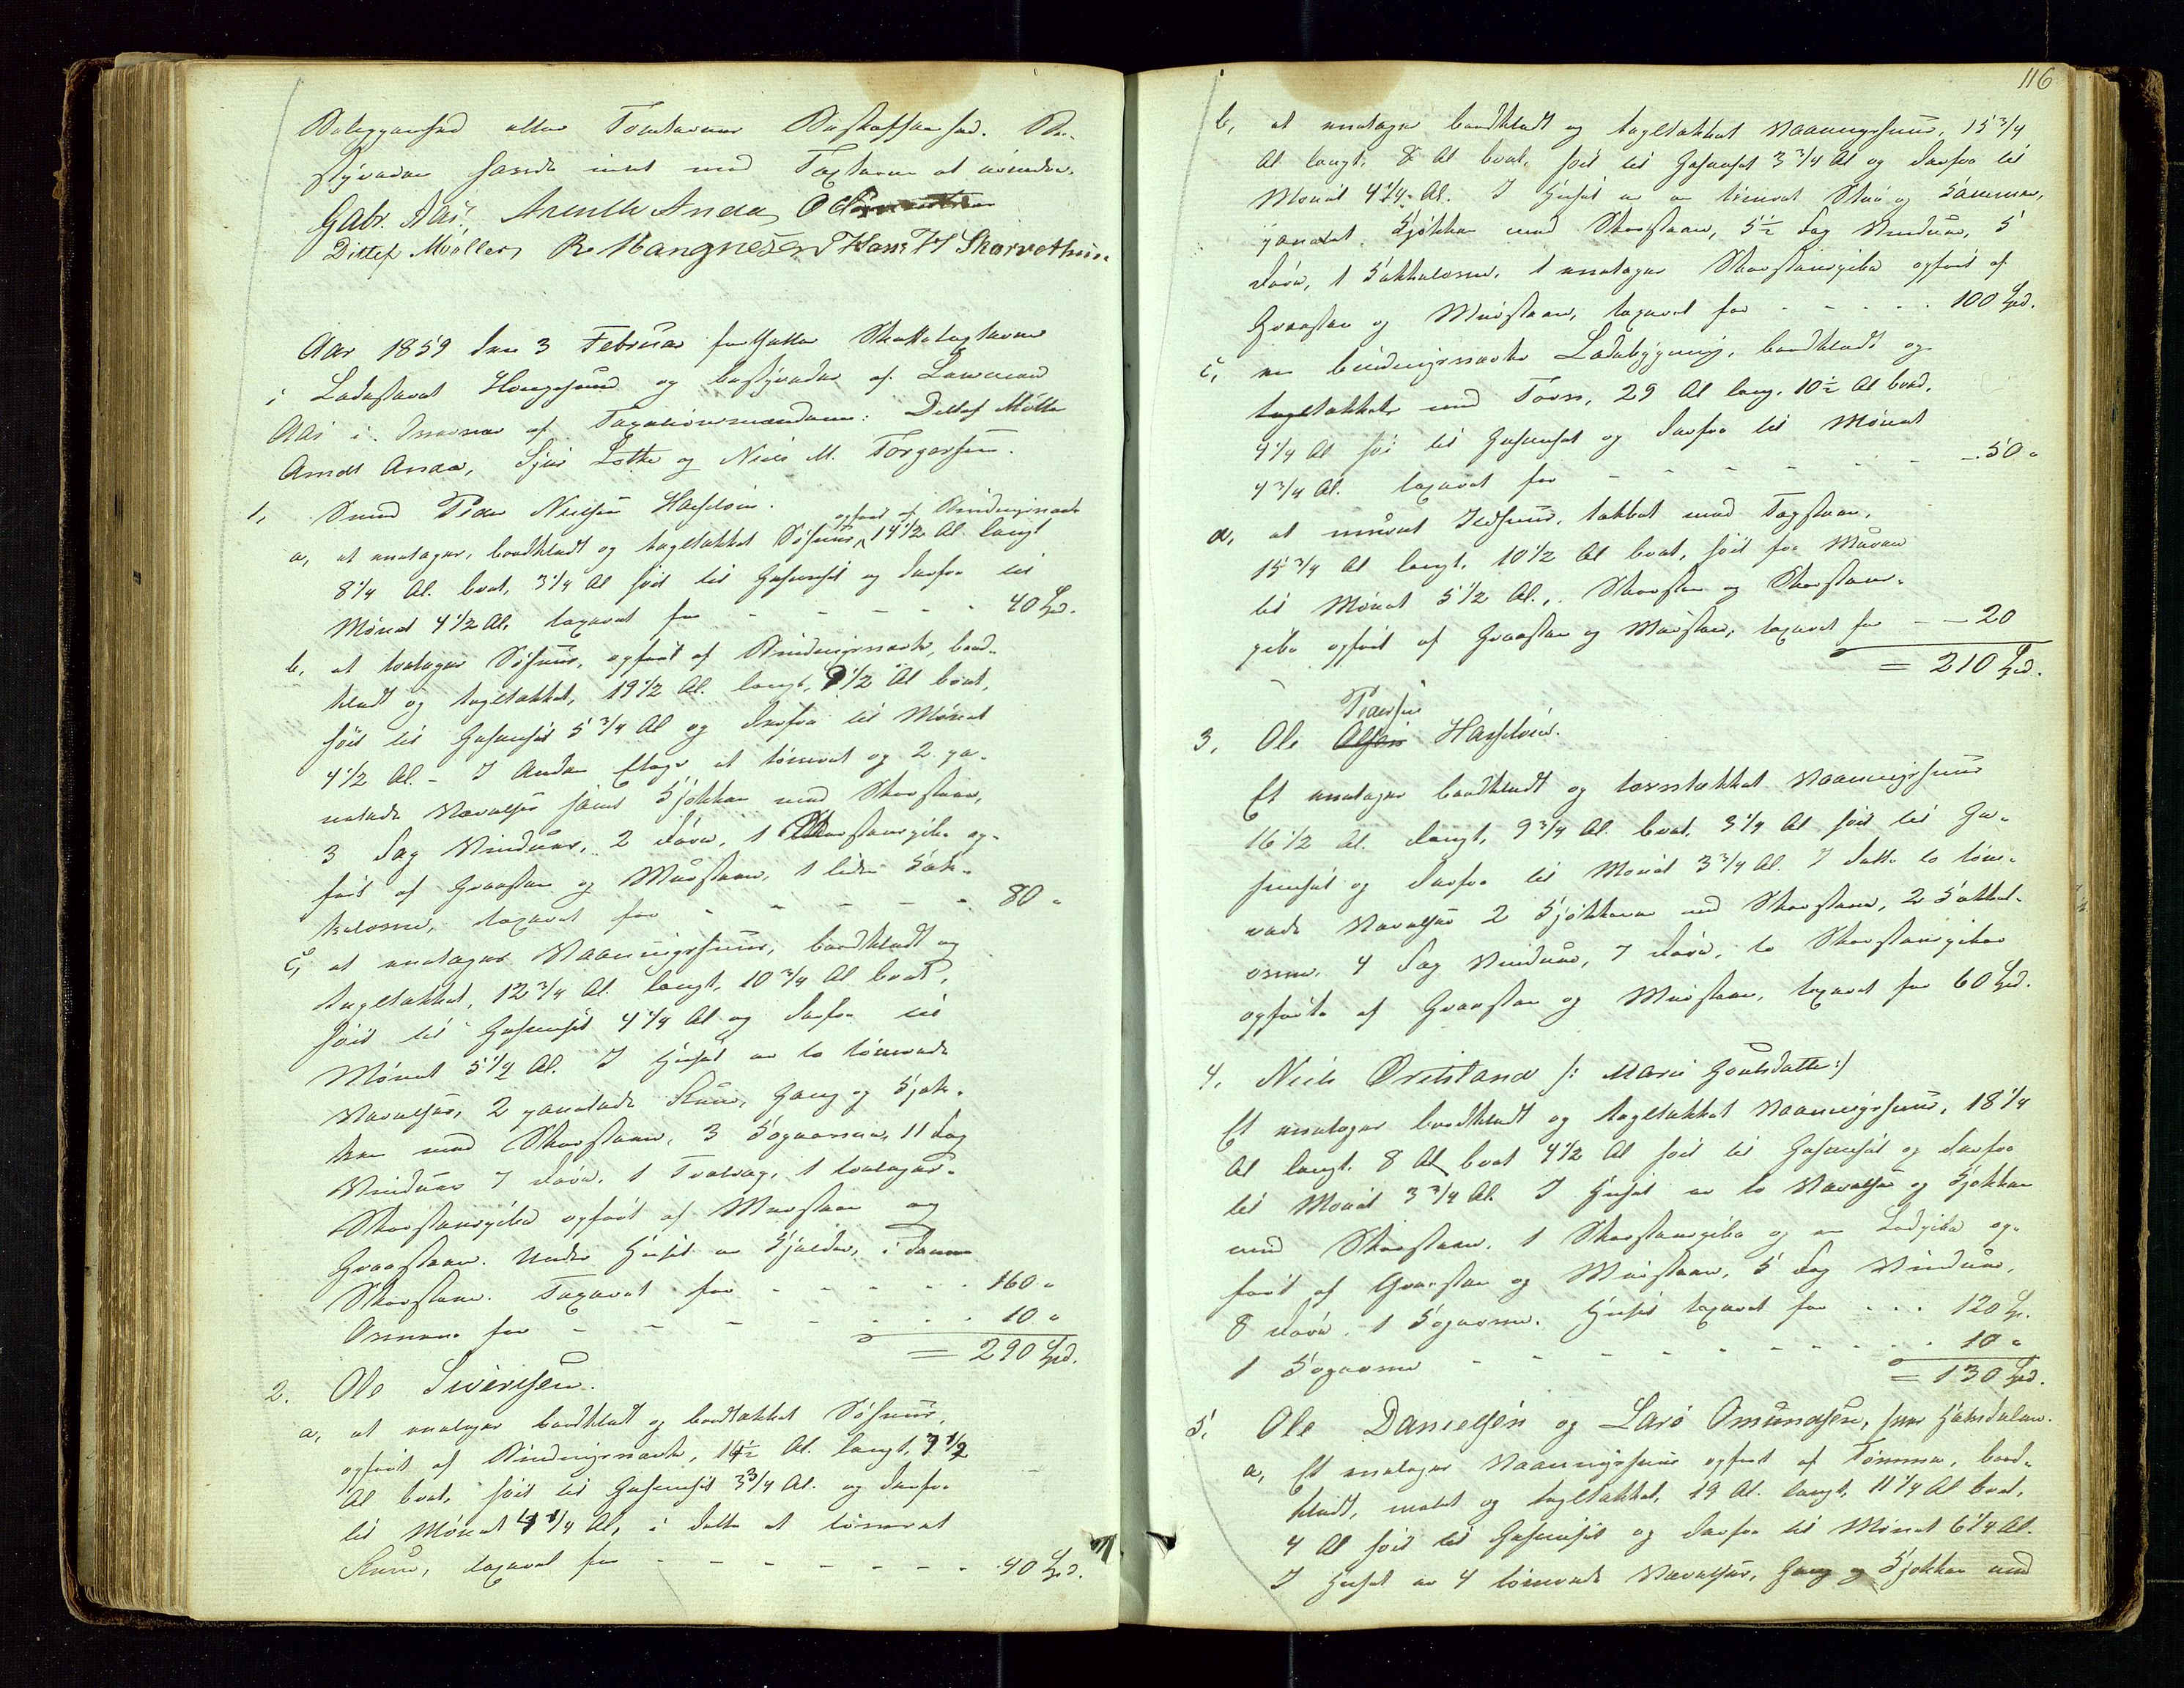 Beliggenhed eller Tomternes Beskaffenhed. Be-
styreren havde intet med Taxterne at erindre.
Gabr. Aas. Arendt Anda
Ditlef Møller, B Mangnesen Hans H Skarvethuus
Aar 1859 den 3 Februar fortsattes Skatte
i Ladestedet Haugesund og bestyredes af Lensmand
Aas i Overvær af Taxationsmændene: Ditlef Møller
Arndt Anda, Sjur Lothe og Niels M. Torgersen.
1, Smed Peder Nielsen Hasseløen.
opført af Bindingsverk
a, et enetages, bordklædt og tagltækket Søhuus, 14 1/2 Al. langt
8 1/4 Al. bredt, 3 1/4 Al høit til Gesimset og derfra til
Mønet 4 1/2 Al. taxeret for - - - - - 40 Spd.
b, et toetages Søhuus, opført af Bindingsverk, bord-
klædt og tagltækket, 19 1/2 Al. langt, 9 1/2 Al bredt,
høit til Gesimset 5 3/4 Al og derfra til Mønet
4 1/2 Al. - I Anden Etage et tømret og 2 pa-
nelede Værelser samt Kjøkken med Skorsteen,
3 Fag Vinduer, 2 Døre, 1 Skorsteenspibe op-
ført af Graasteen og Muursteen, 1 liden Kak-
kelovn, taxeret for - - - - - 80 "
c, et enetages Vaaningshuus, bordklædt og
tagltækket, 12 3/4 Al. langt, 10 3/4 Al bredt,
høit til Gesimset 4 1/4 Al og derfra til
Mønet 5 1/2 Al. I Huset er to tømrede
Værelser, 2 panelede Rum, Gang og Kjøk-
ken med Skorsteen, 3 Kogeovne, 11 Fag
Vinduer 7 Døre, 1 , 1 toetages
Skorsteenspibe opført af Muursteen og
Graasteen. Under Huset er Kjelder, i denne
Skorsteen. Taxeret for - - - - - 160 "
Ovnene for - - - - - - 10 "
= 290 Spd.
2. Ole Sivertsen.
a, et enetages bordklædt og bordtækket Søhuus,
opført af Bindingsverk, 14 1/2 Al. langt, 7 1/2
Al bredt, høit til Gesimset 3 3/4 Al. og derfra
til Mønet 4 1/4 Al, i dette et tømret
Rum, taxeret for - - - - - - - 40 Spd.
116
b, et enetages bordklædt og tagltækket Vaaningshuus, 15 3/4
Al langt, 8 Al bredt, høit til Gesimset 3 3/4 Al og derfra til
Mønet 4 1/4 Al. I Huset er en tømret Stue og Kammer,
panelet Kjøkken med Skorsteen, 5 1/2 Fag Vinduer, 5
Døre, 1 Kakkelovn, 1 enetages Skorsteenspibe opført af
Graasteen og Muursteen, taxeret for - - - - - 100 Spd.
c, en bindingsverks Ladebygning, bordklædt og
tagltækket med Torv, 29 Al lang, 10 1/2 Al bred,
4 1/4 Al høi til Gesimset og derfra til Mønet
4 3/4 Al. taxeret for - - - - - - 50 "
d, et muret Ildhuus, tækket med Tagsteen,
15 3/4 Al langt, 10 1/2 Al bredt, høit fra Muren
til Mønet 5 1/2 Al., Skorsteen og Skorsteens-
pibe opført af Graasteen og Muursteen, taxeret for - - 20
= 210 Spd.
Pedersen
3, Ole Olsen Hasseløen.
Et enetages bordklædt og torvtækket Vaaningshuus
16 1/2 Al. langt, 9 3/4 Al. bredt, 3 1/4 Al høit til Ge-
simset og derfra til Mønet 3 3/4 Al. I dette to tøm-
rede Værelser 2 Kjøkkener med Skorsteen, 2 Kakkel-
ovne, 4 Fag Vinduer, 7 Døre, to Skorsteenspiber
opførte af Graasteen og Muursteen, taxeret for 60 Spd.
4, Niels Østeland /: Marie Goutsdatter :/
Et enetages bordklædt og tagltækket Vaaningshuus, 18 1/4
Al langt, 8 Al bredt 4 1/2 Al høit til Gesimset og derfra
til Mønet 3 3/4 Al. I Huset er to Værelser og Kjøkken
med Skorsteen, 1 Skorsteenspibe og en op-
ført af Graasteen og Muursteen, 5 Fag Vinduer,
8 Døre, 1 Kogeovn. Huset taxeret for - - - 120 Sp.
1 Kogeovn - - - - - - - - 10 "
= 130 Spd.
5, Ole Danielsen og Lars Omundsen,
a, Et enetages Vaaningshuus opført af Tømmer, bord-
klædt, malet og tagltækket, 19 Al. langt, 11 1/4 Al bredt,
4 Al høit til Gesimset og derfra til Mønet 6 1/4 Al.
I Huset er 4 tømrede Værelser, Gang og Kjøkken med